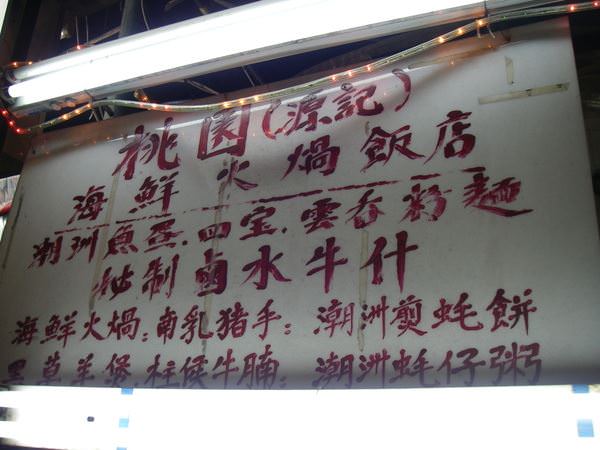 桃園(源記)
海鮮火煱飯店
潮州魚蛋.四宝.雲吞粉麵
秘制鹵水牛什
海鮮火煱:南乳猪手:潮洲煎蚝餅
草羊煲.柱候牛腩:潮洲蚝仔粥